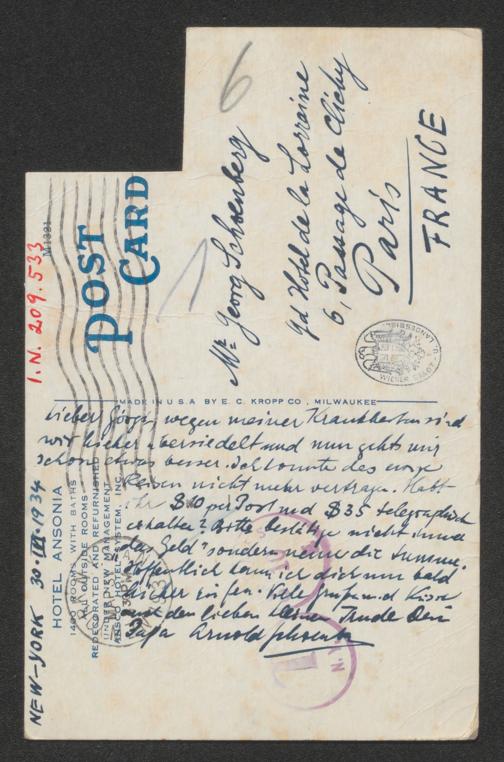 6
Mr Georg Schoenberg
gd Hotel de la Lorraine
6, Passage de Clichy
Paris
FRANCE
POST
CARD
M1321
I.N. 209.533
MADE IN U.S.A. BY E. C. KROPP CO., MILWAUKEE
Lieber Görgi, wegen meiner Krankheiten sind
wir hieher übersiedelt und nun gehts mir
schon etwas besser. Ich konnte das ewige
Reisen nicht mehr vertragen. Habt
ihr $ per Post und $ 35 telegraphisch
erhalten? Bitte bestätige nicht immer
„das Geld" sondern nenne die Summe.
Hoffentlich kann ich dich nun bald
hieher Viele Grüße und Küsse
auch den lieben Trude Dein
Papa Arnold Schoenberg
NEW-YORK 30.III.1934
HOTEL ANSONIA
1400 ROOMS WITH BATHS
ALL OUTSIDE ROOMS
REDECORATED AND REFURNISHED
UNDER NEW MANAGEMENT
ANSCO HOTEL SYSTEM, INC.
N.Y.